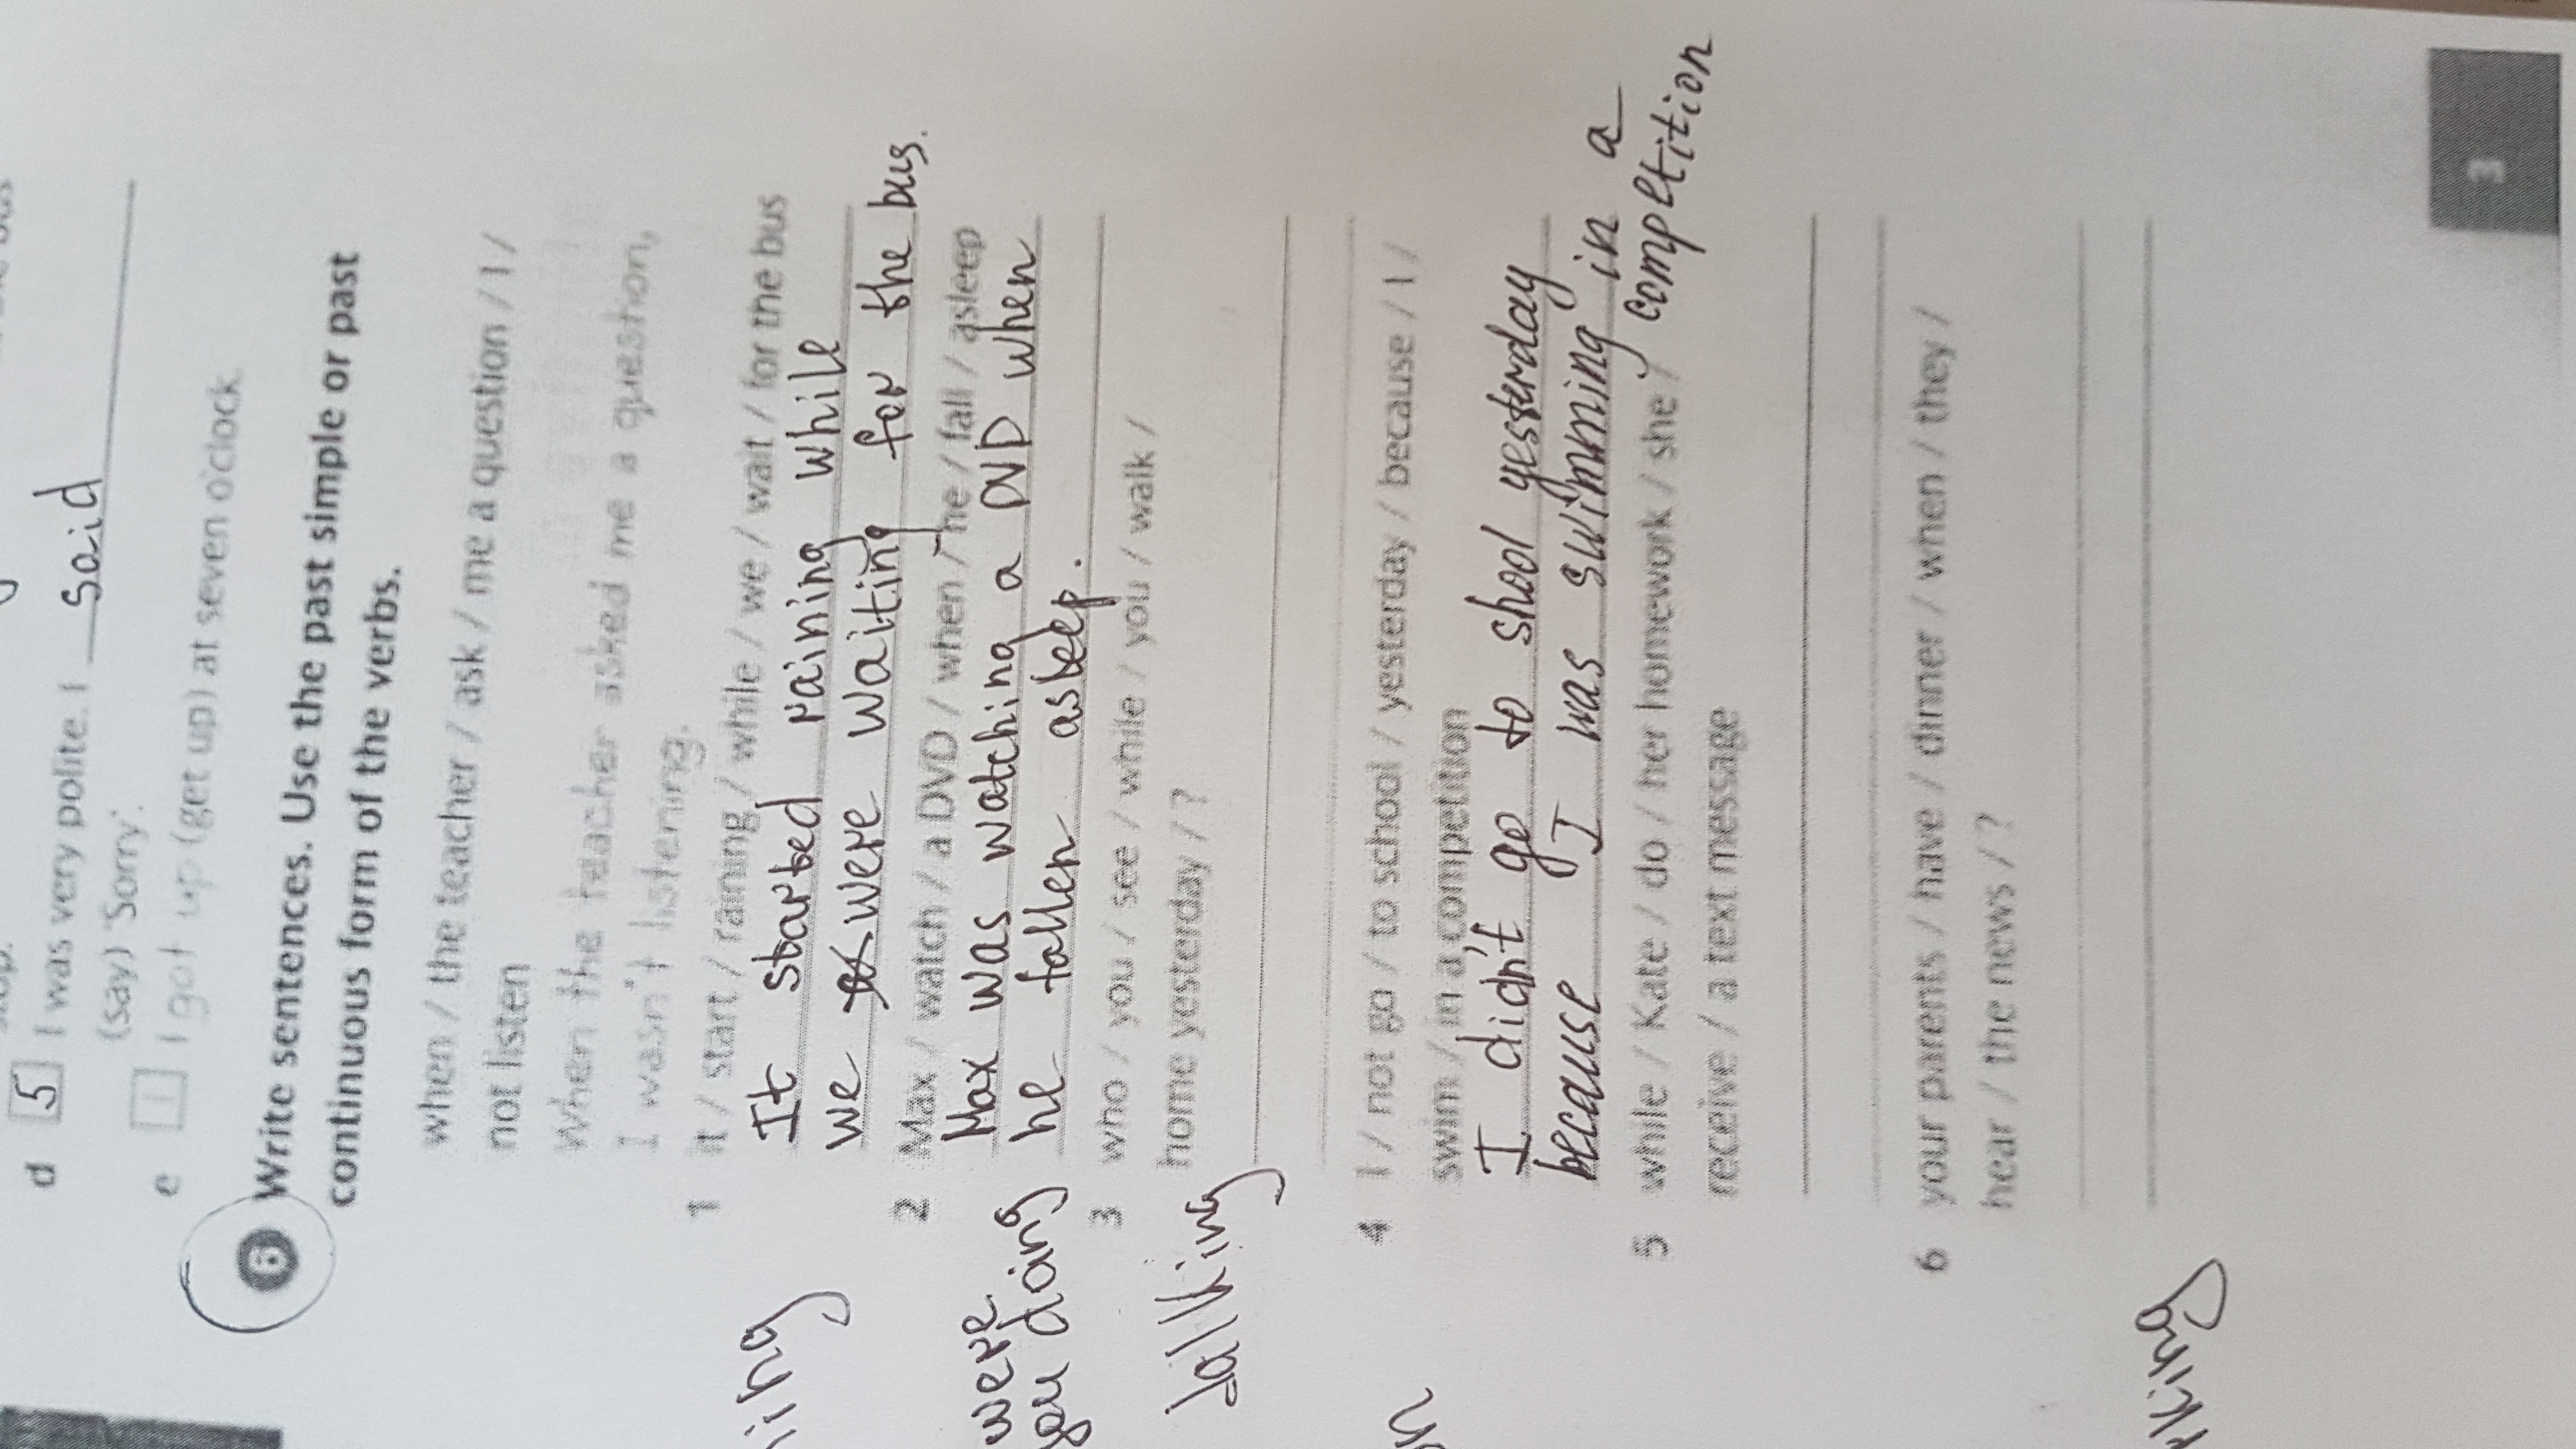 d 5 I was very polite. I said
(say) 'Sorry'.
e 1 I got up (get up) at seven o'clock.
6 Write sentences. Use the past simple or past
continuous form of the verbs.
when / the teacher / ask / me a question / I /
not listen
When the teacher asked me a question,
I wasn't listening.
1 it / start / raining / while / we / wait / for the bus
It started raining while
we were waiting for the bus.
2 Max / watch / a DVD / when / he / fall / asleep
Max was watching a DVD when
he fallen asleep.
3 who / you / see / while / you / walk /
home yesterday / ?
4 I / not go / to school / yesterday / because / I /
swim / in a competition
I didn't go to shool yesterday
because I was swimming in a
compeltition
5 while / Kate / do / her homework / she /
receive / a text message
6 your parents / have / dinner / when / they /
hear / the news / ?
were
you doing
talking
3